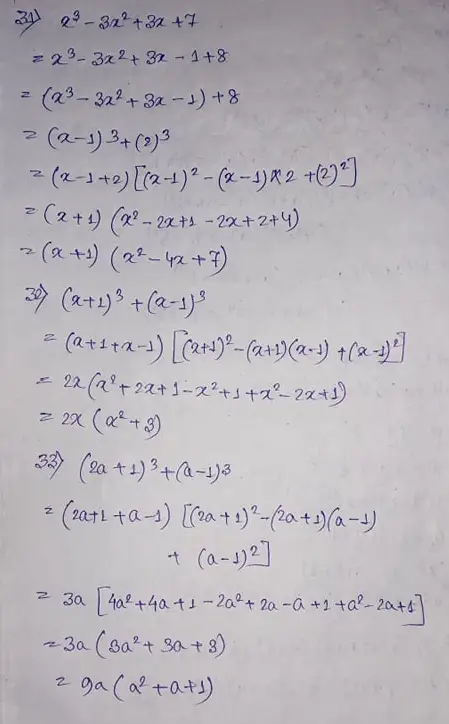 31) x³ - 3x² + 3x + 7
= x³ - 3x² + 3x - 1 + 8
= (x³ - 3x² + 3x - 1) + 8
= (x-1)³ + (2)³
= (x-1+2) [(x-1)² - (x-1)×2 + (2)²]
= (x+1) (x² - 2x + 1 - 2x + 2 + 4)
= (x+1) (x² - 4x + 7)
32) (x+1)³ + (x-1)³
= (x+1+x-1) [(x+1)² - (x+1)(x-1) + (x-1)²]
= 2x (x² + 2x + 1 - x² + 1 + x² - 2x + 1)
= 2x (x² + 3)
33) (2a+1)³ + (a-1)³
= (2a+1+a-1) [(2a+1)² - (2a+1)(a-1)
+ (a-1)²]
= 3a [4a² + 4a + 1 - 2a² + 2a - a + 1 + a² - 2a + 1]
= 3a (3a² + 3a + 3)
= 9a (a² + a + 1)